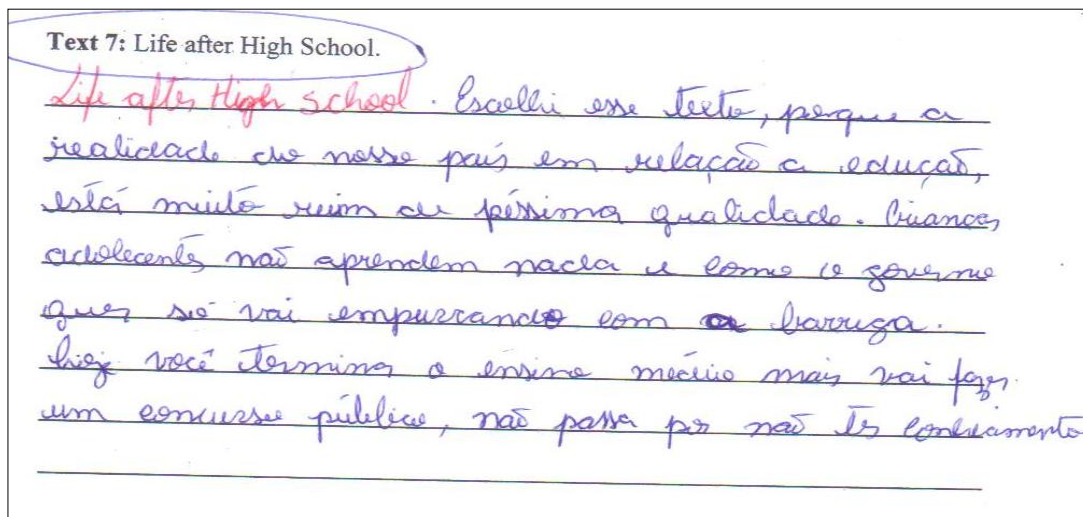 Text 7: Life after High School.
Life after High School. Escolhi esse texto, porque a
realidade do nosso país em relação a edução,
está muito ruim de péssima qualidade. Crianças,
adolecentes não aprendem nada e como o governo
quer só vai empurrando com a barriga.
hoje você termina o ensino médio mais vai fazer
um concurso público, não passa por não ter conhecimento